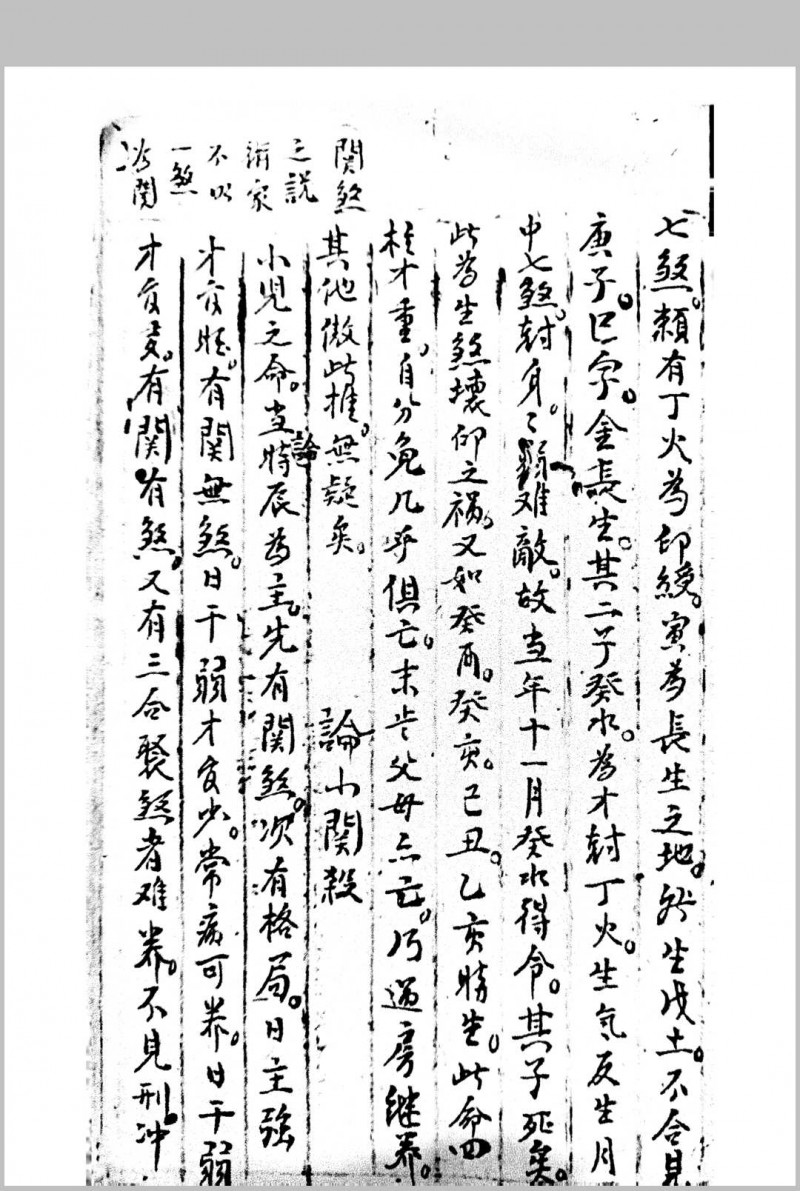 七煞。頼有丁火為印綬。寅為長生之地。然生戊土。不合見
庚子。巳字。金長生。其二子癸水。為才尅丁火。生氣反生月
中七煞。尅身。身弱难敵。故当年十一月癸水得令。其子死矣。
此為生煞壊印之禍。又如癸酉。癸亥。己丑。乙亥時生。此命四
柱才重。自分免几乎俱亡。未岁父母亦亡。乃過房継养。
其他倣此推。無疑矣。
論小関殺
小児之命。当論時辰為主。先有関煞。次有格局。日主強
才官旺。有関無煞。日干弱才官少。常病可养。日干弱
才官多。有関有煞。又有三合聚煞者难养。不見刑冲
関煞
之説
術家
不以
一煞
為関